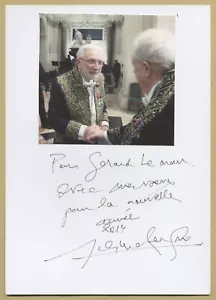 Pour Gérard Le
avec mes vœux
pour la nouvelle
année
2014